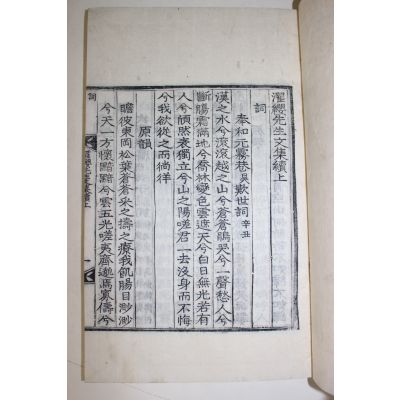 濯纓先生文集續上
詞
奉和元霧巷吳歎世詞 辛丑
漢之水兮滾滾越之山兮蒼蒼鵑哭兮一聲愁人兮
斷腸霜滿地兮喬林變色雲遮天兮白日無光若有
人兮頎然表獨立兮山之陽嗟君一去沒身而不悔
兮我欲從之而徜徉
原韻
瞻彼東岡松葉蒼蒼采之擣之療我飢腸目渺渺
兮天一方懷黯黯兮雲五光嗟夷齊邈焉寡儔兮
詞